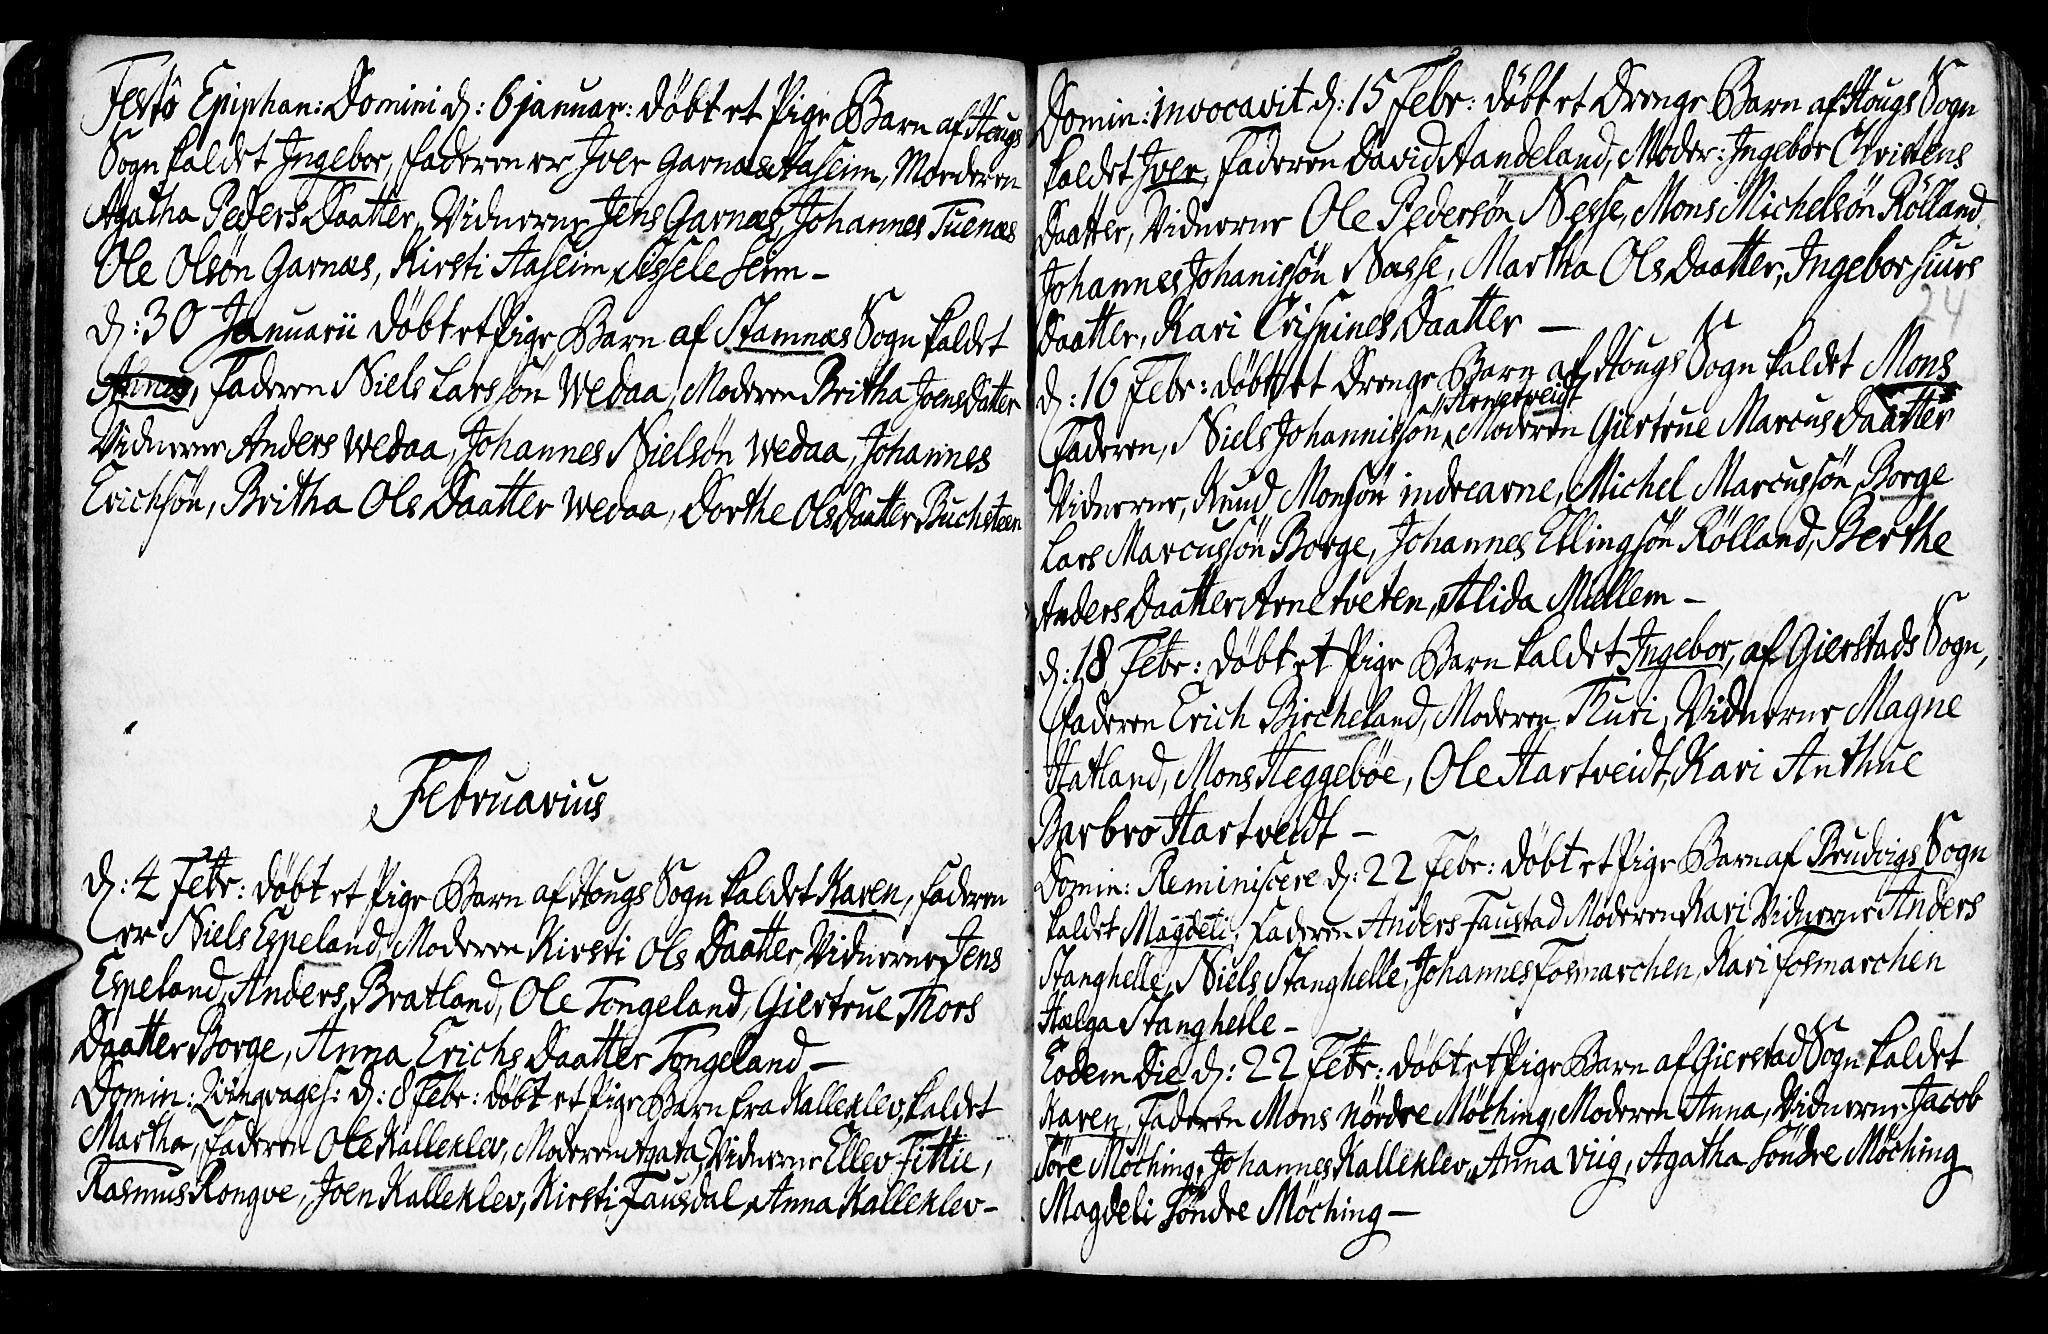 Festô Epiphan: Domini d: 6 januar: døbt et Pige Barn af Hougs
Sogn kaldet Ingebor, faderen er Joer Garnæs Haseim, Moderen
Agatha Peders Daatter, Vidnerne Jens Garnæs, Johannes Tuenæs
Ole Olsøn Garnæs, Kirsti Haseim, Sissele Seim -
d: 30 Januarii døbt et Pige Barn af Stamnæs Sogn kaldet
Anna, Faderen Niels Larssøn Wedaa, Moderen Britha Joens Datter
Vidnerne Anders Wedaa, Johannes Nielsøn Wedaa, Johannes
Erichsøn, Britha Ols Daatter Wedaa, Dorthe Ols Daatter Buchsteen
Februarius
d: 4 Febr: døbt et Pige Barn af Hougs Sogn kaldet Karen, faderen
er Niels Espeland, Moderen Kirsti Ols Daatter, Vidnerne Jens
Espeland, Anders Bratland, Ole Tongeland, Giertrue Thors
Daatter Borge, Anna Erichs Daatter Tongeland -
Domin: Qvinqvages: d: 8 Febr: døbt et Pige Barn fra Kalleklev, kaldet
Martha, faderen Ole Kalleklev, Moderen Agata, Vidnerne Ellev Tittie,
Rasmus Rongve, Joen Kalleklev, Kirsti Fausdal, Anna Kalleklev -
Domin: invocavit d: 15 Febr: døbt et Drenge Barn af Hougs Sogn
kaldet Joer, Faderen David Aandeland, Moder: Ingebor Christens
Daatter, Vidnerne Ole Pedersøn Nesse, Mons Michelsøn Rølland,
Johannes Johanissøn Næsse, Martha Ols Daatter, Ingebor Siurs
Daatter, Kari Crispines Daatter -
24
d: 16 Febr: døbt et Drenge Barn af Hougs Sogn kaldet Mons
Arnetveidt
Faderen, Niels Johannissøn, Moderen Giertrue Marcus Daatter
Vidnerne, Knud Monsøn indrearne, Michel Marcussøn Borge
Lars Marcussøn Borge, Johannes Ellingsøn Rølland, Berthe
Anders Daatter Arnetveten, Alida Mællem -
d: 18 Febr: døbt et Pige Barn kaldet Ingebor, af Gierstads Sogn,
faderen Erich Bircheland, Moderen Thuri, Vidnerne Magne
Hatland, Mons Heggebøe, Ole Hartveidt, Kari Anthue
Barbro Hartveidt -
Domin: Reminiscere d: 22 Febr: døbt et Pige Barn af Brudvigs Sogn
kaldet Magdeli, Faderen Anders Faustad Moderen Kari Vidnerne Anders
Stanghelle, Niels Stanghelle, Johannes Fosmarchen, Kari Fosmarchen
Hælga Stanghelle -
Eodem Die d: 22 Febr: døbt et Pige Barn af Gierstad Sogn kaldet
Karen, Faderen Mons Nørdre Møching, Moderen Anna, Vidnerne Jacob
Søre Møching, Johannes Kalleklev, Anna Viig, Agatha Søndre Møching
Magdeli Søndre Møching -